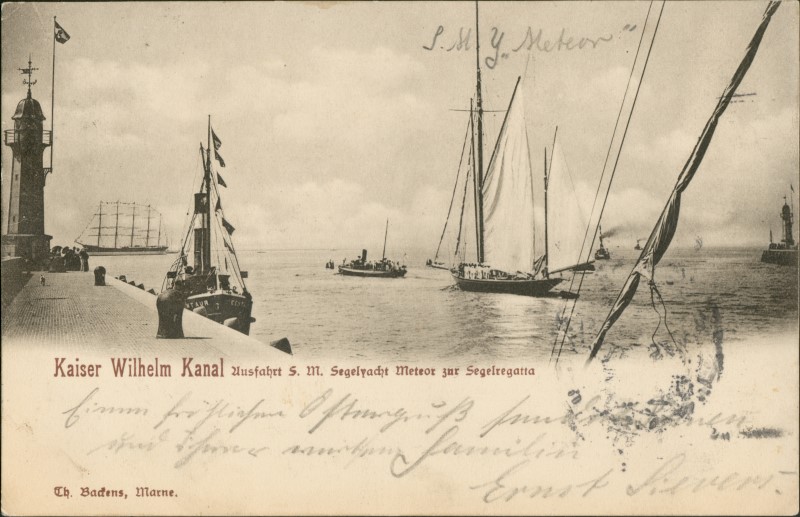 S. M. Y. „Meteor"
Kaiser Wilhelm Kanal Ausfahrt S. M. Segelyacht Meteor zur Segelregatta
Einen fröhlichen Ostergruß sendet Ihnen
und Ihrer werten Familie
Ernst Sievers.
Th. Backens, Marne.